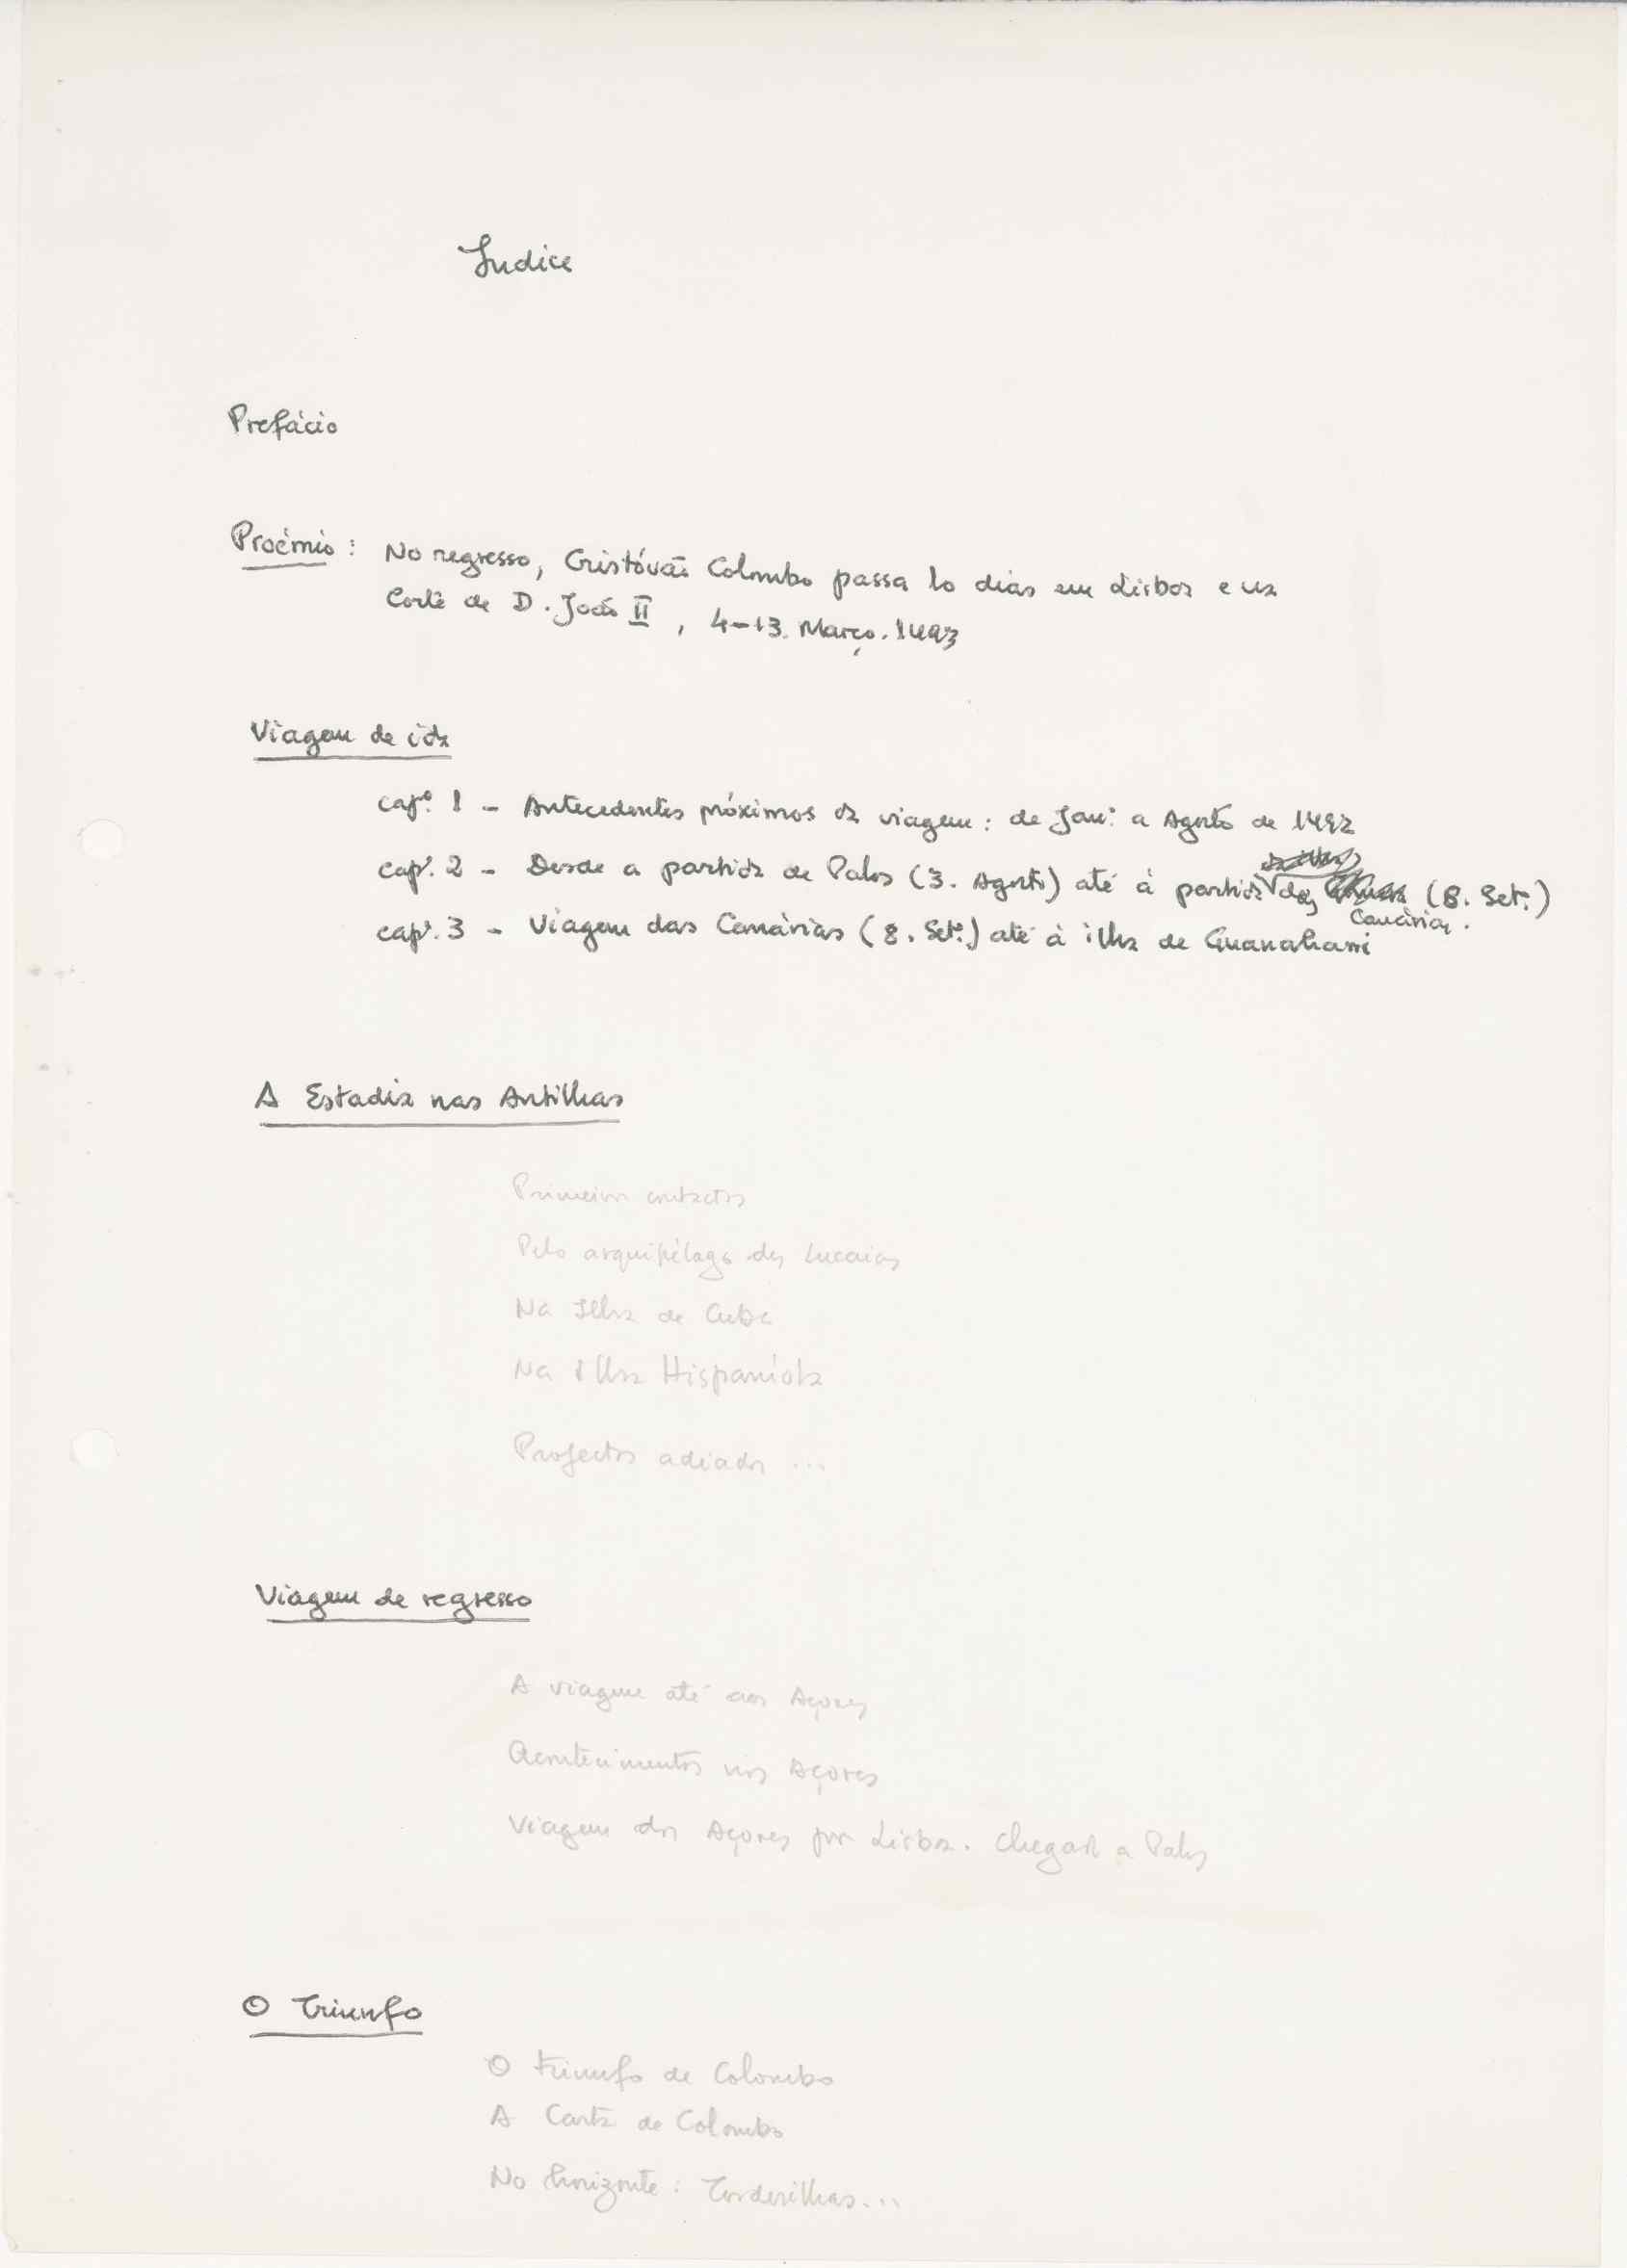 Indice
Prefácio
Proémio: No regresso, Cristóvão Colombo passa 10 dias em Lisboa e na
Corte de D. João II, 4-13. Março. 1493
Viagem de ida
capº. 1 - Antecedentes próximos da viagem: de Janº. a Agosto de 1492
capº. 2 - Desde a partida de Palos (3. Agosto) até à partida das (8. Setº.)
Canárias.
capº. 3 - Viagem das Canárias (8. Setº.) até à ilha de Guanahani
A Estadia nas Antilhas
Primeiros contactos
Pelo arquipélago das Lucaias
Na Ilha de Cuba
Na Ilha Hispaniola
Projectos adiados ...
Viagem de regresso
A viagem até aos Açores
Acontecimentos nos Açores
Viagem dos Açores por Lisboa. Chegada a Palos
O Triunfo
O triunfo de Colombo
A Carta de Colombo
No horizonte: Tordesilhas...